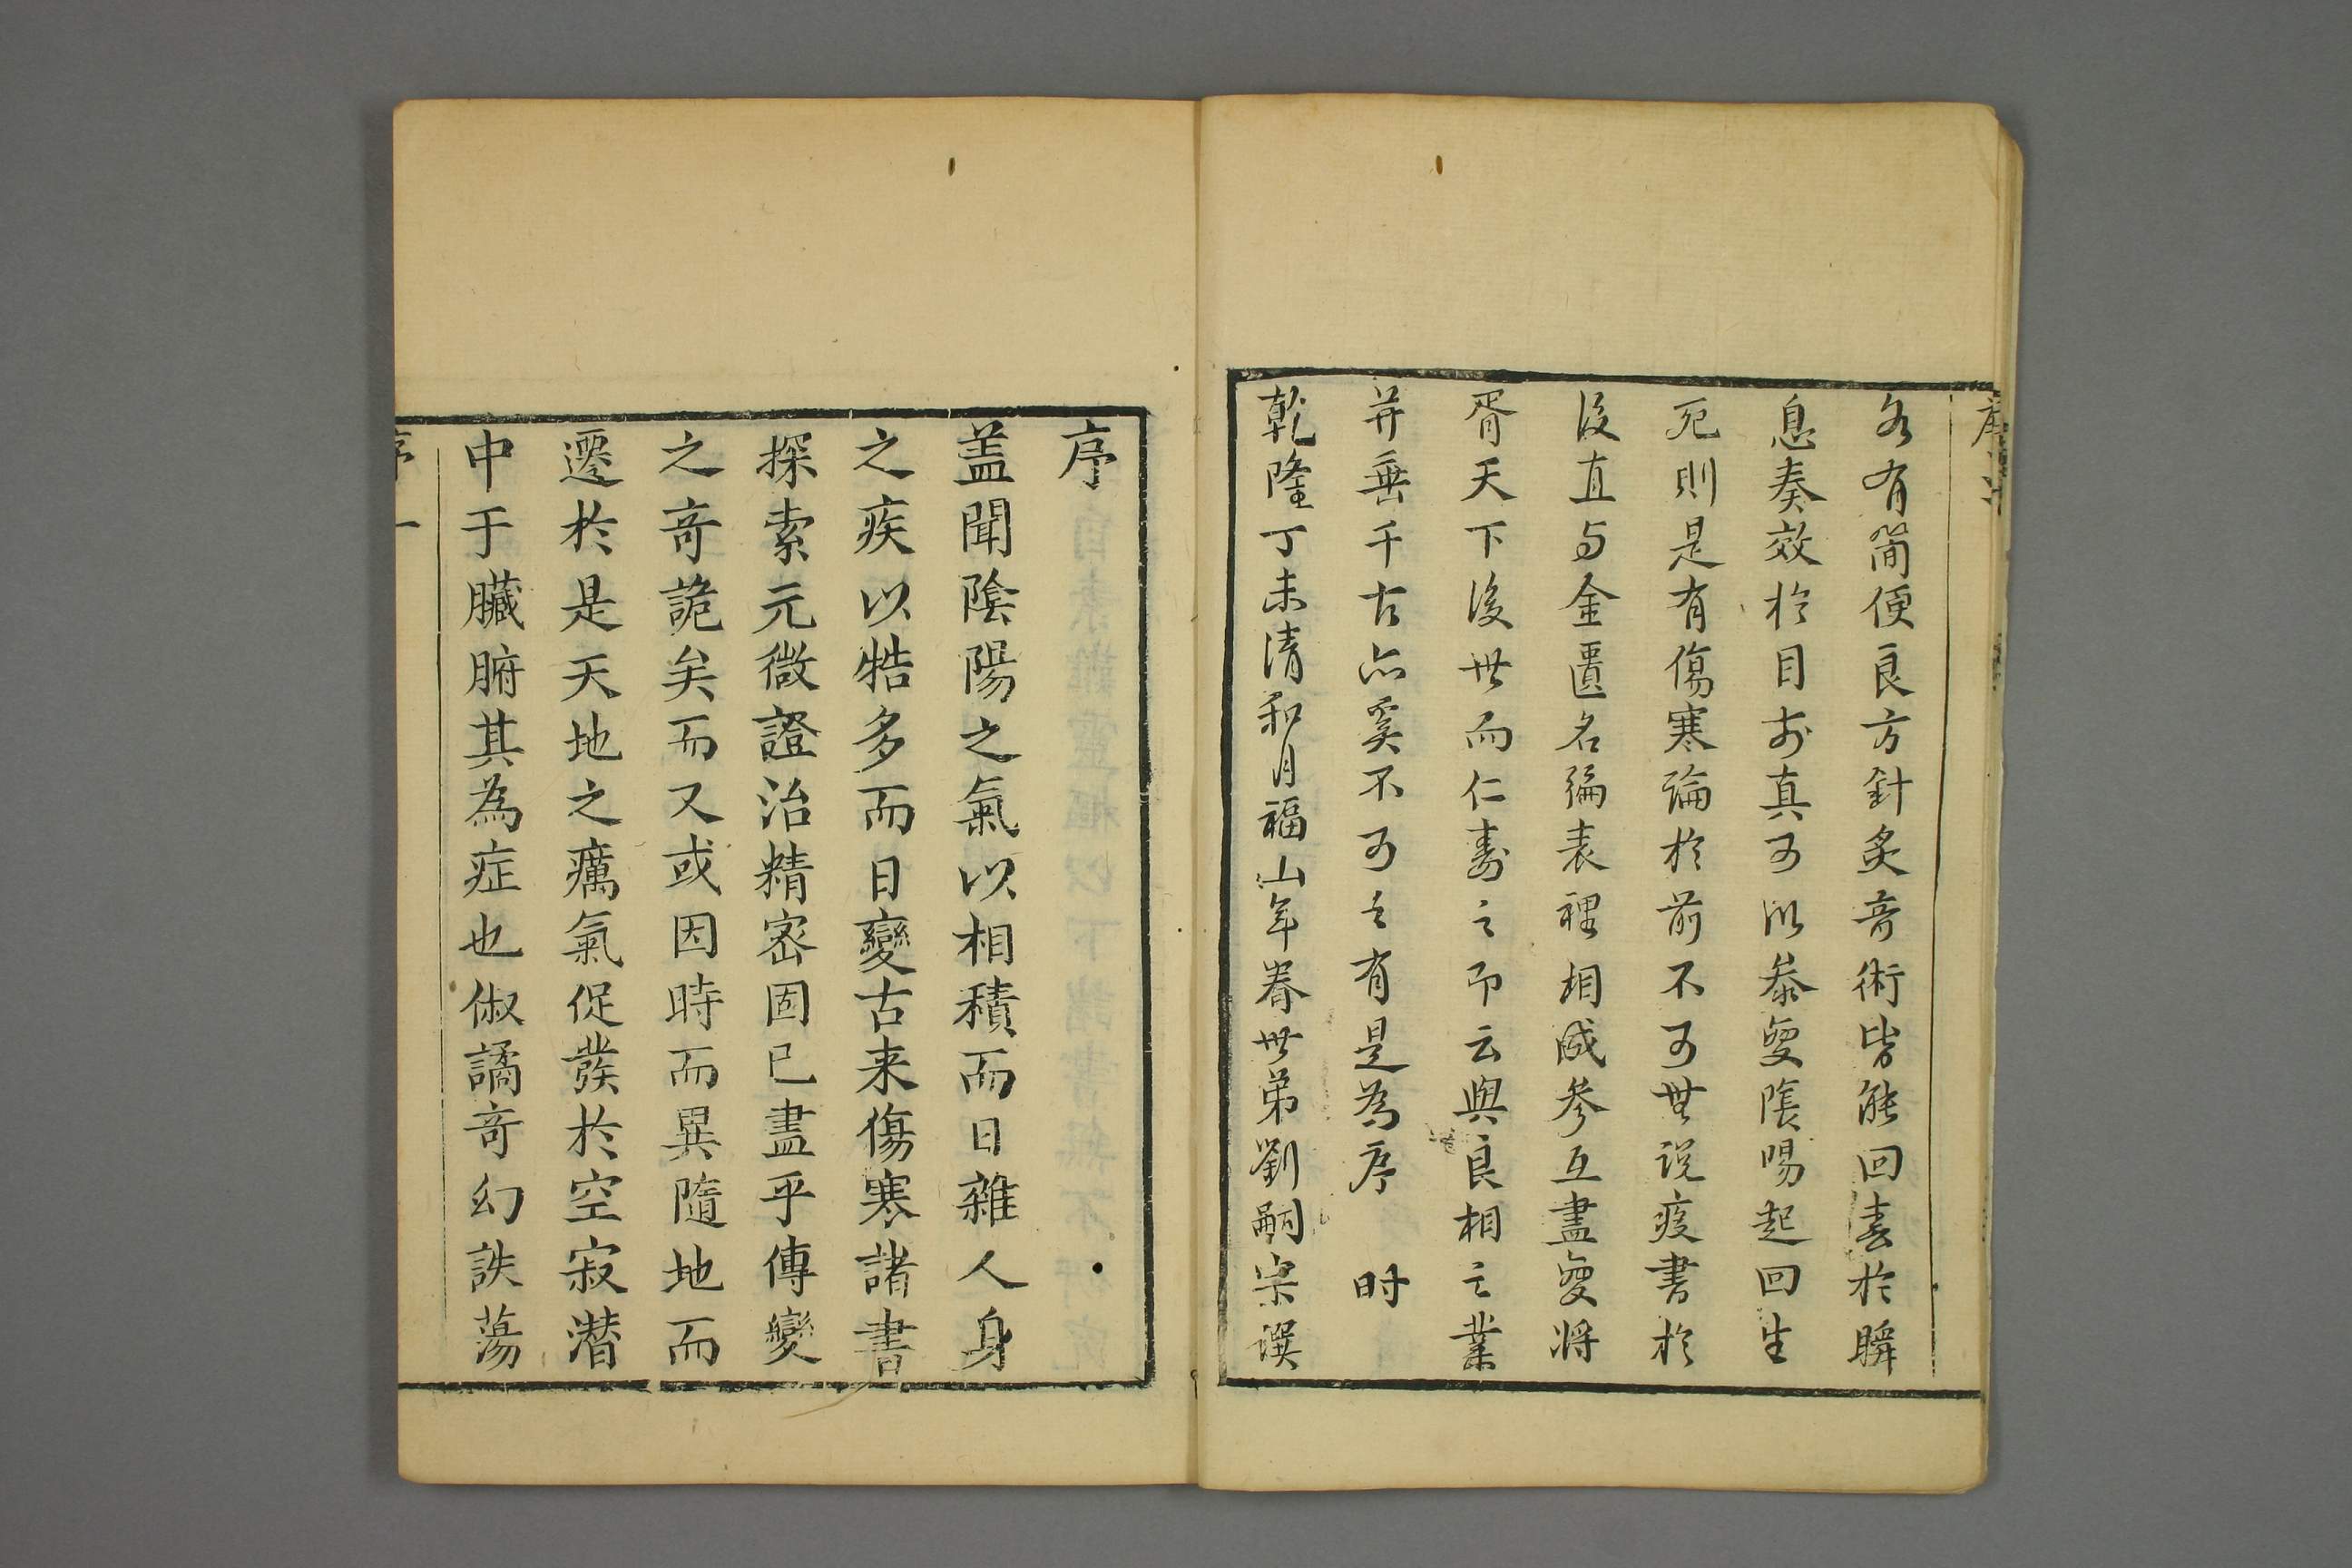 各有簡便良方針炙奇術皆能回春於瞬
息奏效於目前真可以叅變陰陽起回生
死則是有傷寒論於前不可無說疫書於
後直与金匱名編表裡相成參互盡變將
胥天下後世而仁壽之即云與良相之業
并垂千古亦奚不可之有是為序　时
乾隆丁未清和月福山年眷世弟劉嗣宗譔
序
盖聞陰陽之氣以相積而日雜人身
之疾以牿多而日變古来傷寒諸書
探索元微證治精密固已盡乎傳變
之奇詭矣而又或因時而異隨地而
遷於是天地之癘氣促發於空寂潜
中于臟腑其為症也俶譎奇幻詄蕩
序一